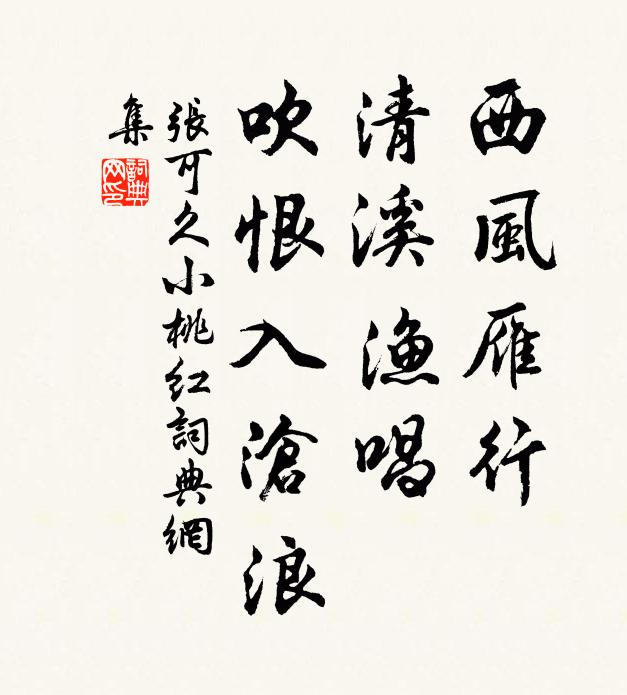 西風雁行
清溪漁唱
吹恨入滄浪
張可久小桃紅詞典網
集
詞典
网印